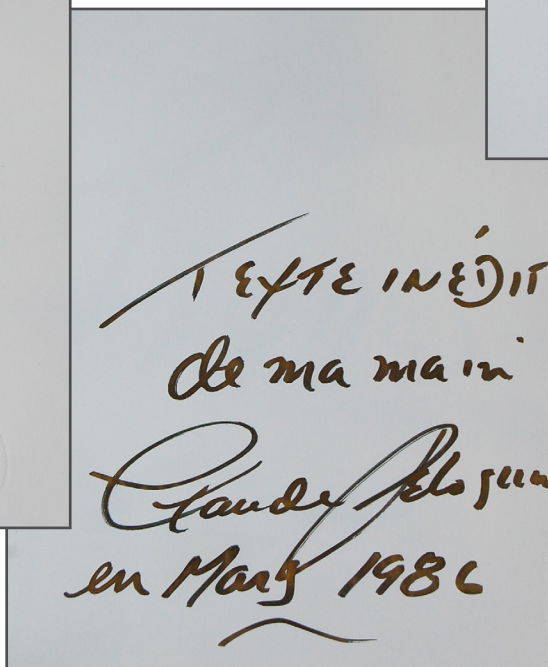 TEXTE INÉDIT
de ma main
Claude
en Mars 1986